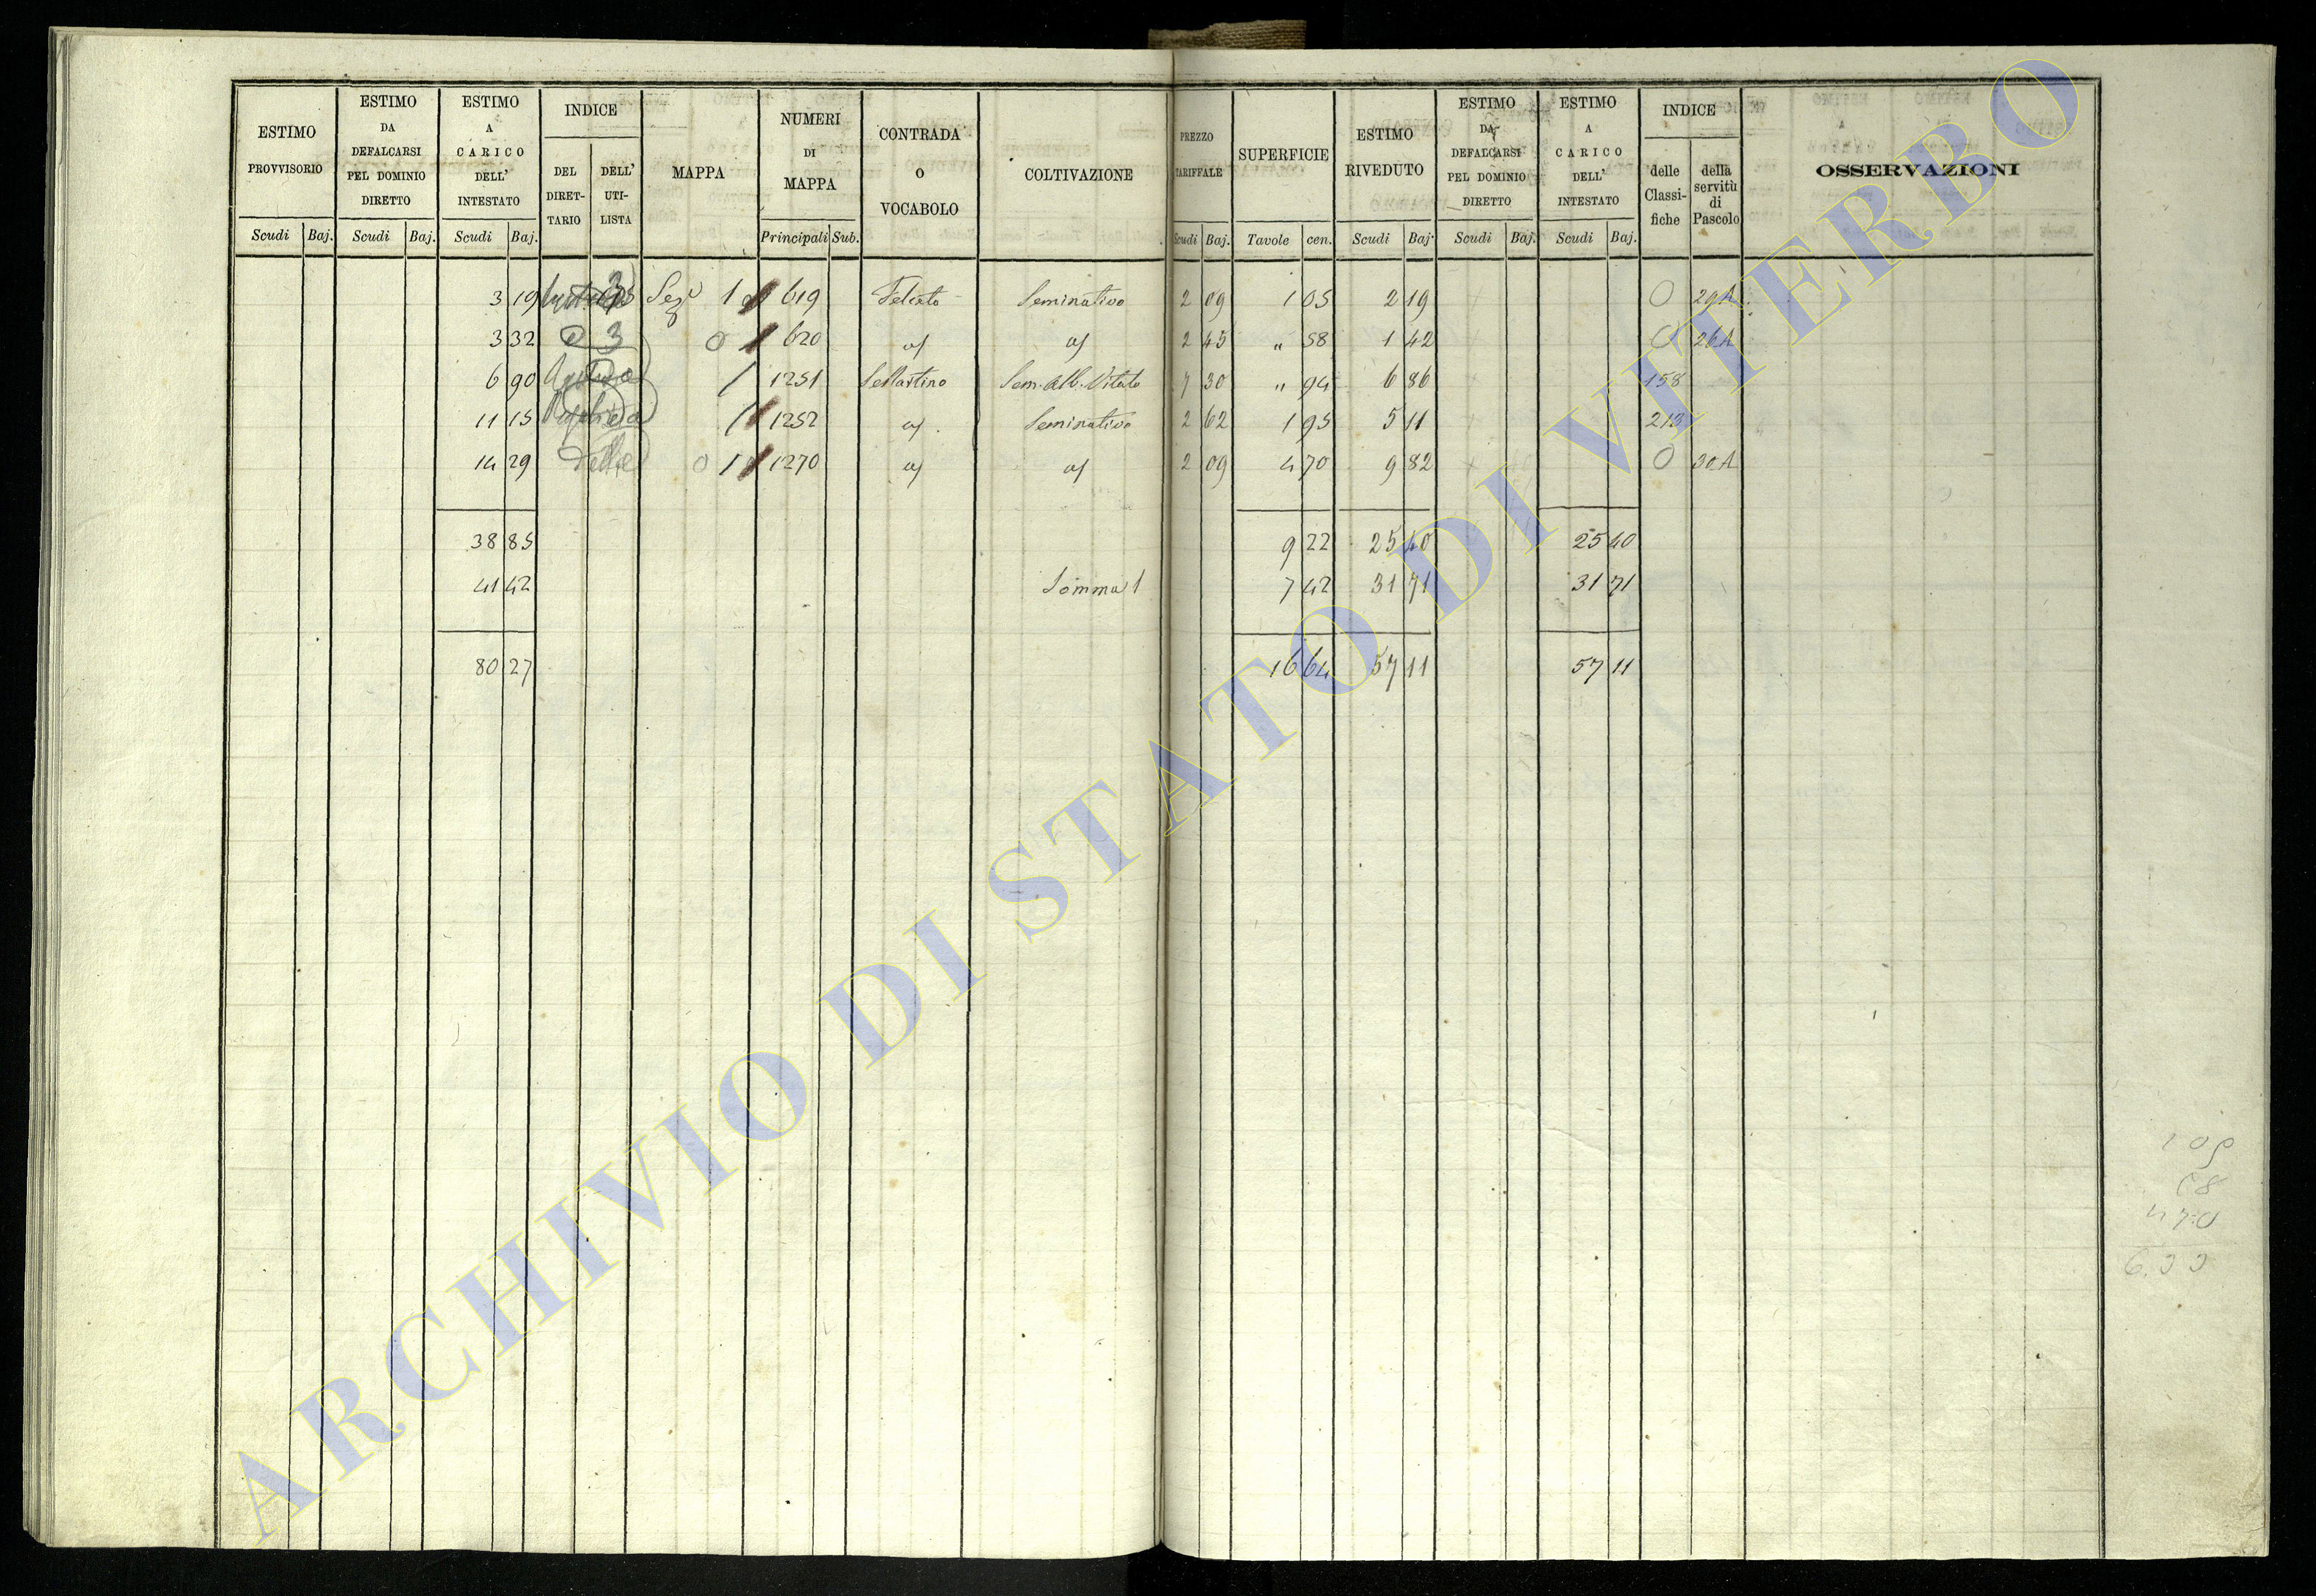 ESTIMO PROVVISORIO
Scudi Baj.
ESTIMO DA DEFALCARSI PEL DOMINIO DIRETTO
Scudi Baj.
ESTIMO A CARICO DELL' INTESTATO
Scudi Baj.
INDICE
DEL DIRET-TARIO
DELL' UTI-LISTA
MAPPA
NUMERI DI MAPPA
Principali Sub.
CONTRADA O VOCABOLO
COLTIVAZIONE
PREZZO TARIFFALE
Scudi Baj.
SUPERFICIE
Tavole cen.
ESTIMO RIVEDUTO
Scudi Baj.
ESTIMO DA DEFALCARSI PEL DOMINIO DIRETTO
Scudi Baj.
ESTIMO A CARICO DELL' INTESTATO
Scudi Baj.
INDICE
delle Classi-fiche
della servitù di Pascolo
OSSERVAZIONI
3 19 1 619 Seminativo 2 09 1 05 2 19 0 29A
3 32 3 0 620 2 45 " 58 1 42 0 26A
6 90 1251 Sem. Alb. Vitato 7 30 " 94 6 86 158
11 15 1252 Seminativo 2 62 1 95 5 11 213
14 29 0 1 1270 2 09 4 70 9 82 0 30A
38 85 9 22 25 40 25 40
41 42 Somma 1 7 42 31 71 31 71
80 27 16 64 57 11 57 11
4 70
ARCHIVIO DI STATO DI VITERBO